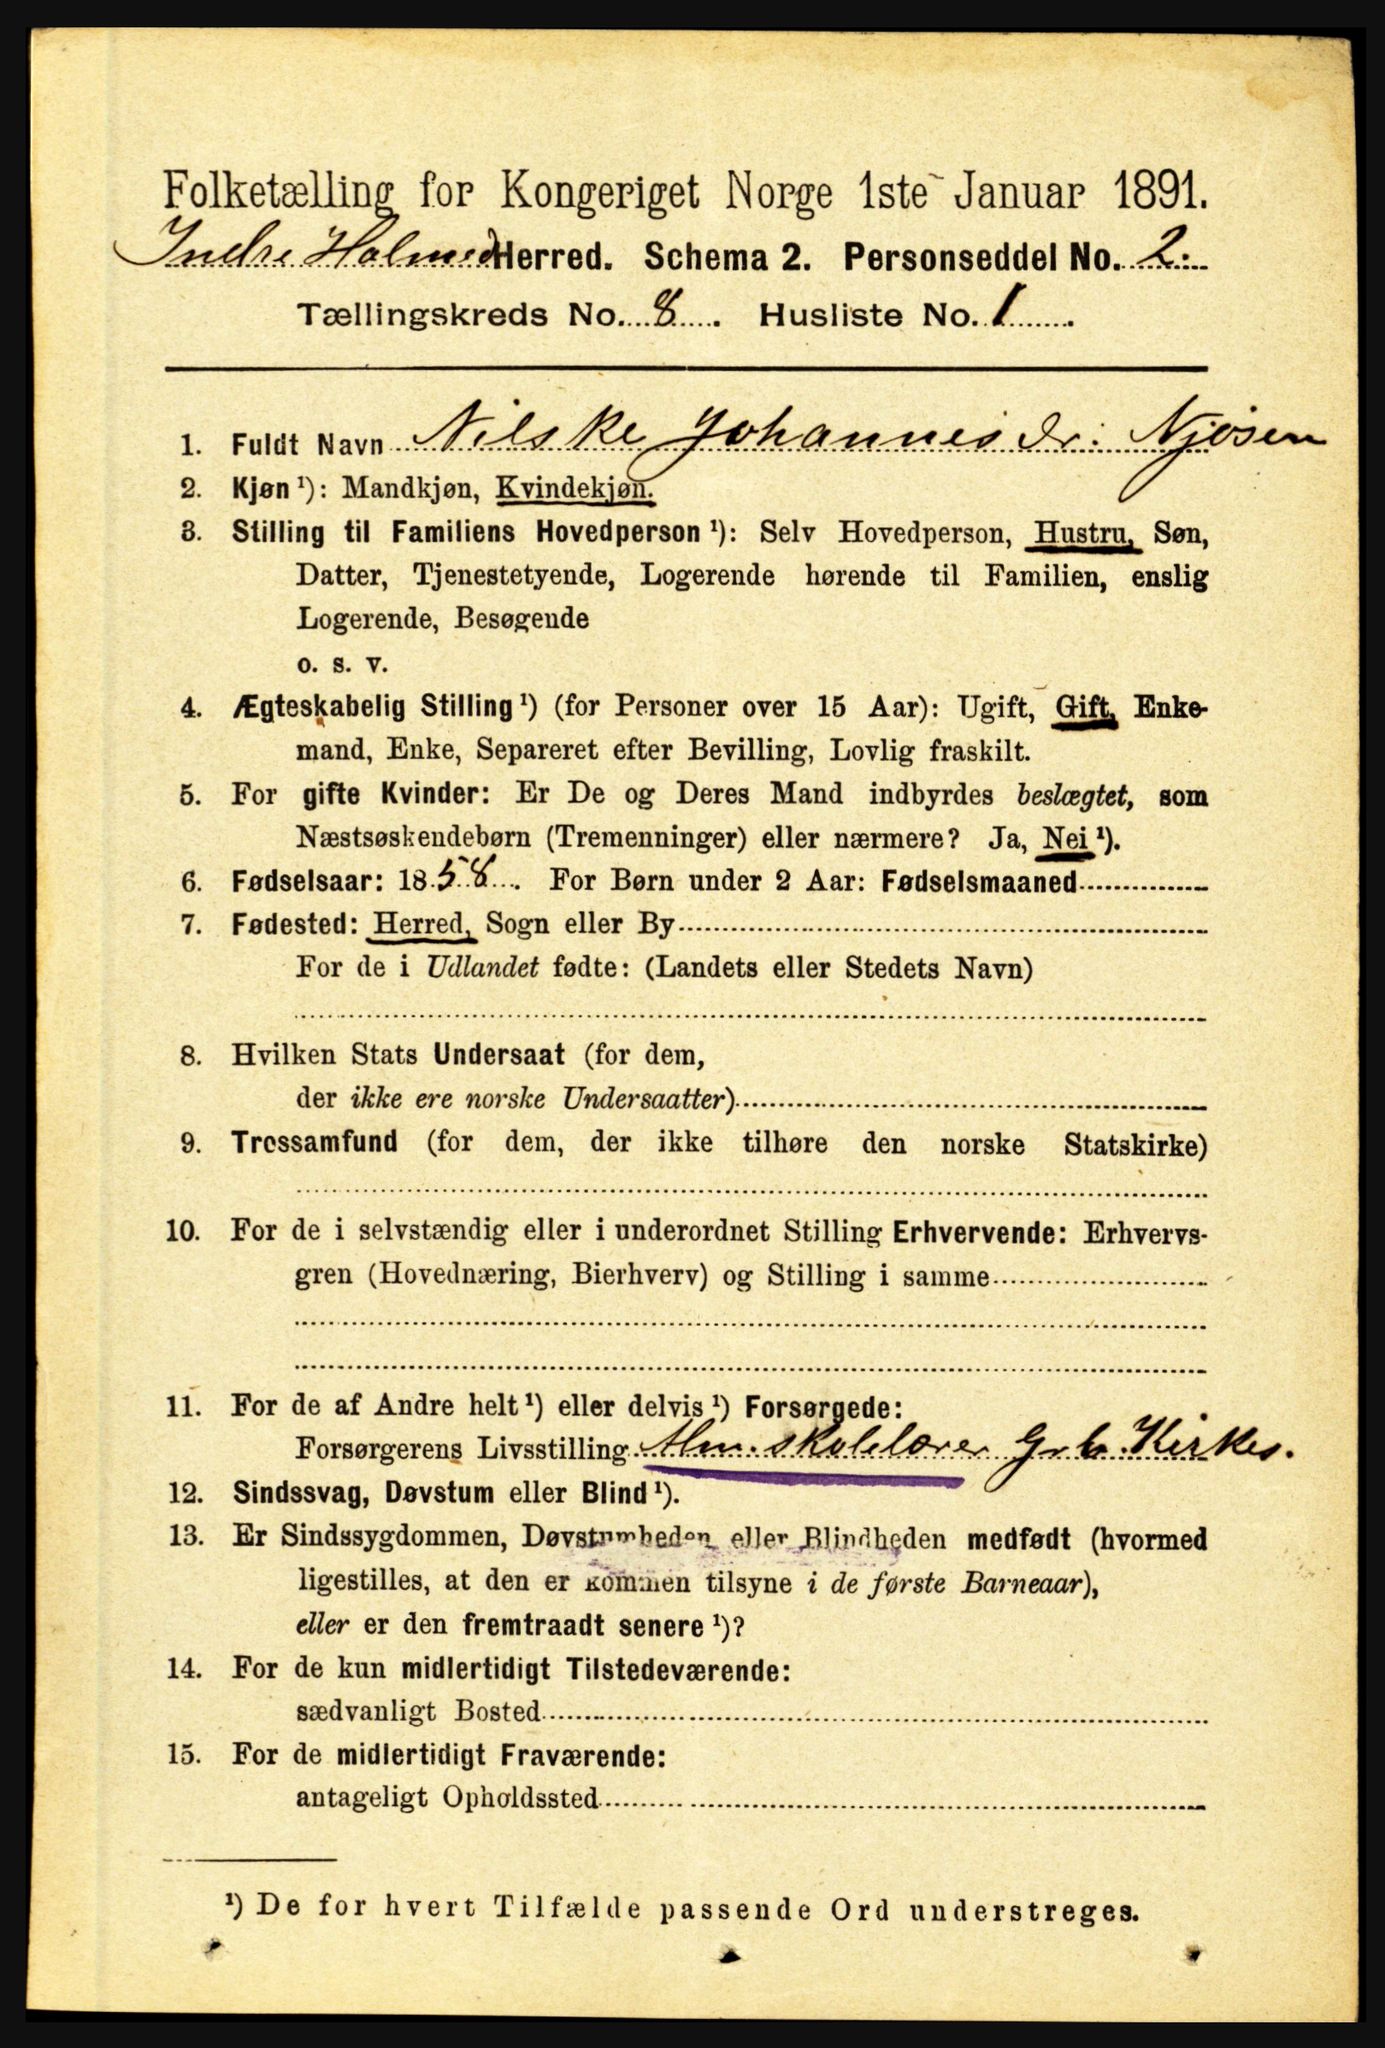 Folketælling for Kongeriget Norge 1ste Januar 1891.
Indre Holmed Herred. Schema 2. Personseddel No. 2.
Tællingskreds No. 8. Husliste No. 1.
1. Fuldt Navn Nilske Johannesdr. Njøsen
2. Kjøn¹): Mandkjøn, Kvindekjøn.
3. Stilling til Familiens Hovedperson¹): Selv Hovedperson, Hustru, Søn,
Datter, Tjenestetyende, Logerende hørende til Familien, enslig
Logerende, Besøgende
o. s. v.
4. Ægteskabelig Stilling¹) (for Personer over 15 Aar): Ugift, Gift, Enke-
mand, Enke, Separeret efter Bevilling, Lovlig fraskilt.
5. For gifte Kvinder: Er De og Deres Mand indbyrdes beslægtet, som
Næstsøskendebørn (Tremenninger) eller nærmere? Ja, Nei¹).
6. Fødselsaar: 1858. For Børn under 2 Aar: Fødselsmaaned
7. Fødested: Herred, Sogn eller By
For de i Udlandet fødte: (Landets eller Stedets Navn)
8. Hvilken Stats Undersaat (for dem,
der ikke ere norske Undersaatter)
9. Trossamfund (for dem, der ikke tilhøre den norske Statskirke)
10. For de i selvstændig eller i underordnet Stilling Erhvervende: Erhvervs-
gren (Hovednæring, Bierhverv) og Stilling i samme
11. For de af Andre helt¹) eller delvis¹) Forsørgede:
Forsørgerens Livsstilling Alm. skolelærer Grb. Kirkes.
12. Sindssvag, Døvstum eller Blind¹).
13. Er Sindssygdommen, Døvstumheden eller Blindheden medfødt (hvormed
ligestilles, at den er kommen tilsyne i de første Barneaar),
eller er den fremtraadt senere¹)?
14. For de kun midlertidigt Tilstedeværende:
sædvanligt Bosted
15. For de midlertidigt Fraværende:
antageligt Opholdssted
¹) De for hvert Tilfælde passende Ord understreges.